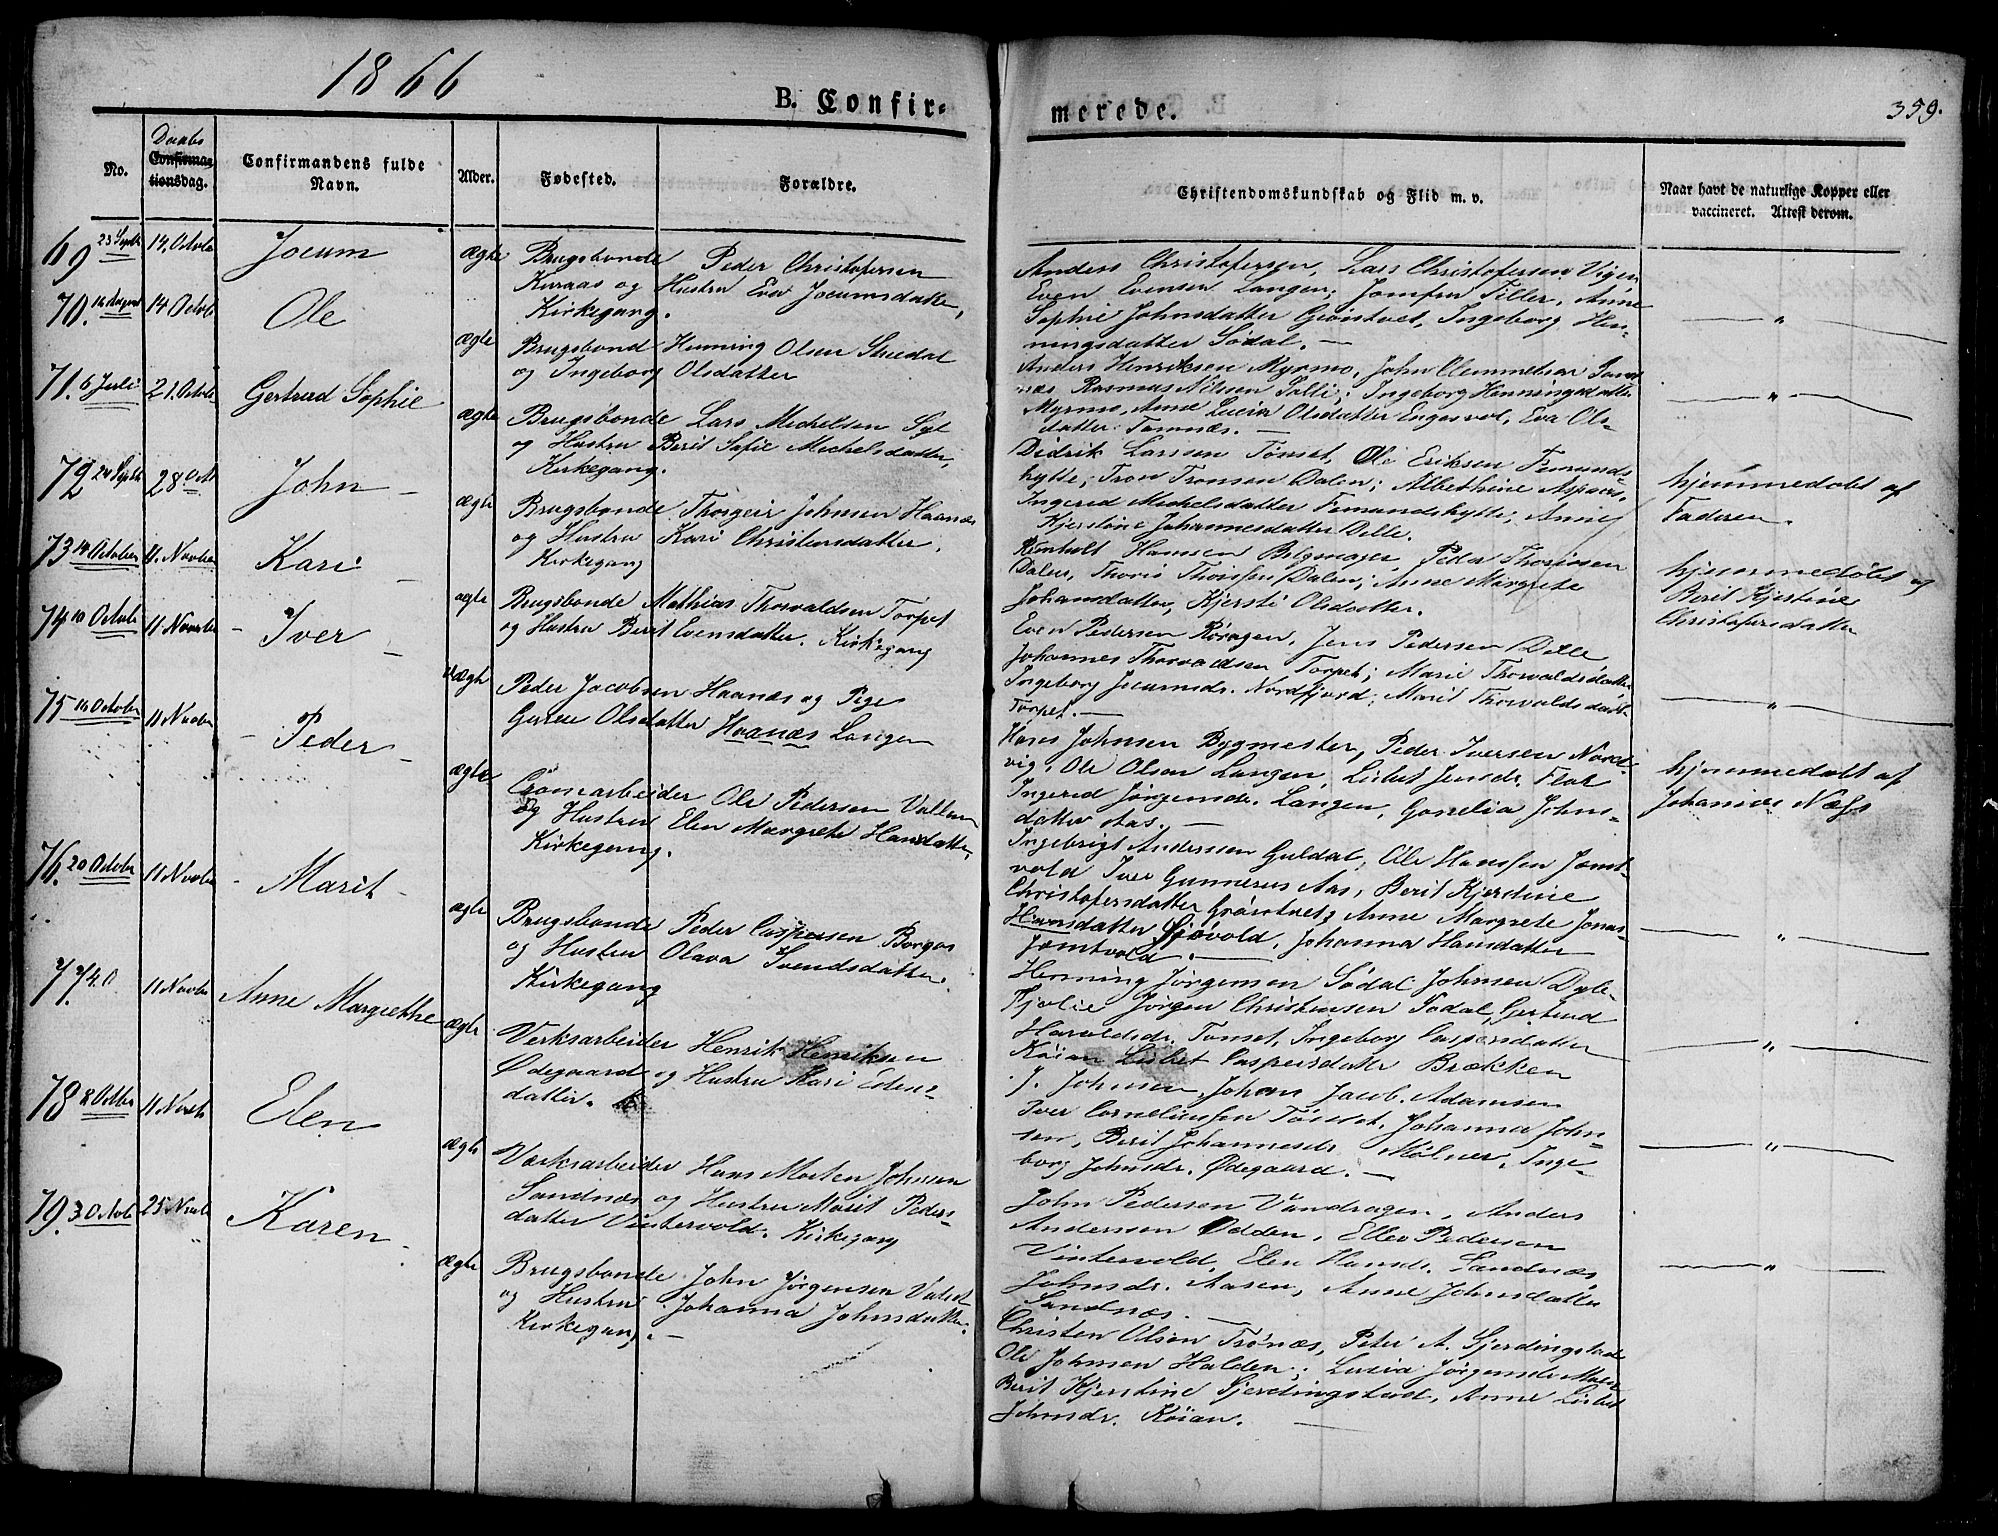 1866
B. Confir-
merede.
359.
No.
Daabs
Confirma-
tionsdag.
Confirmandens fulde
Navn.
Alder.
Fødested.
Forældre.
Christendomskundskab og Flid m. v.
Naar havt de naturlige Kopper eller
vaccineret. Attest derom.
69 23 Septb 14. Octob Jocum ægte
Brugsbonde Peder Christofersen
Kuraas og Hustru Eva Jocumsdatter,
Kirkegang.
Anders Christofersen, Lars Christofersen Vigen
Even Evensen Langen; Jomfru Tiller, Anne
Sophie Johnsdatter Grøntvet, Ingeborg Hen-
ningsdatter Sødal. —
— " —
70. 16 August 14 Octob Ole ægte
Brugsbond Henning Olsen
og Ingeborg Olsdatter
Anders Henriksen Myrmo, John Clemmetsen
næs Rasmus Nilsen Galli; Ingeborg Henningsdatter
Myrmo, Anne Lucia Olsdatter Engesvol, Eva Ols-
datter Tamnæs. —
— " —
71. 6 Juli 21. Octob Gertrud Sophie ægte
Brugsbonde Lars Michelsen
og Hustru Berit Sofie Michelsdatter,
Kirkegang.
Didrik Larsen Tønset, Ole Eriksen Femunds-
hytte; Tron Tronsen Dalen; Albethine Aspaas,
Ingerid Michelsdatter Femundshytte; Anne
Kjerstine Johannesdatter Dille.
hjemmedøbt af
Faderen.
72 24 Septb 28 Oct John — ægte
Brugsbonde Thorgeir Johnsen Haanæs
og Hustru Kari Christensdatter.
Kirkegang
Reinholt Hansen Bygmager, Peder Thorissen
Dalen, Thoris Thorissen Dalen; Anne Margrete
Johansdatter, Kjersti Olsdatter.
hjemmedøbt af
Berit Kjerstine
Christofersdatter
73 14 October 11. Novber Kari — ægte
Brugsbonde Mathias Thorvaldsen Torpet
og Hustru Berit Evensdatter. Kirkegang
Even Pedersen Røragen, Jens Pedersen Dille
Johannes Thorvaldsen Torpet; Marie Thorvaldsdatter
Ingeborg Jocumsdr. Nordfjord; Marit Thorvaldsdatt.
Torpet. —
— " —
74 10 Octob 11 Novbr — Iver — uægte
Peder Jacobsen Haanæs og Pige
Olsdatter Haanæs Langen
Hans Johnsen Bygmester, Peder Iversen Nord-
vig, Ole Olsen Langen, Lisbet Jensdr. Flat
Ingerid Jørgensdr. Langen, Gonelia Johns-
datter Aas. —
hjemmedøbt af
Johannes Næss
75 10 October 11 Novber — Peder — ægte
Gruvearbeider Ole Pedersen Volden
og Hustru Elen Margrete Hansdatter,
Kirkegang.
Ingebrigt Andersen Guldal, Ole Hanssen Jamt-
vold Iver Gunnerus Aas, Berit Kjerstine
Christofersdatter Grøntvet; Anne Margrete Jonas-
Hansdatter Sjøvold, Johanna Hansdatter
Jamtvold. —
— " —
76. 20 Octobr 11 Novber — Marit — ægte
Brugsbonde Peder Caspersen Borgos
og Hustru Olava Svendsdatter.
Kirkegang
Henning Jørgensen Sødal Johnsen Dyle-
Fjolie Jørgen Christensen Sødal, Gertrud
Haroldsdr. Tønset, Ingeborg Caspersdatter
Køian Lisbet Caspersdatter Brækken
— " —
77. 4 O 11 Novbr Anne Margrethe ægte
Verksarbeider Henrik Henriksen
Ødegaard og Hustru Kari Edens-
datter.
J. Johnsen, Johan Jacob. Adamsen
Iver Corneliussen Tønset, Johanna John-
sen, Berit Johannesdr. Mølner, Inge-
borg Johnsdr. Ødegaard. —
— " —
78 8 Octbr 11 Novbr Elen ægte
Værksarbeider Hans Morten Johnsen
Sandnæs og Hustru Marit Peders-
datter Vintervold. Kirkegang
John Pedersen Vandragen, Anders
Andersen Odden, Ellev Pedersen
Vintervold, Elen Hansdr. Sandnæs
Johnsdr. Aasen, Anne Johnsdatter
Sandnæs. —
— " —
79. 3 Octob 25 Novb Karen — ægte
Brugsbonde John Jørgensen Valset
og Hustru Johanna Johnsdatter.
Kirkegang. —
Christen Olsen Trønæs, Peter A. Gjerdingstad
Ole Johnsen Halden; Lucia Jørgensdr. Moen
Berit Kjerstine Gjerdingstad, Anne Lisbet
Johnsdr. Køian. —